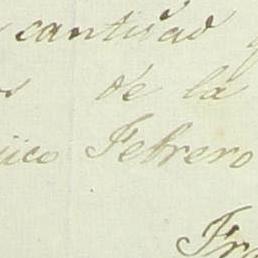 cantidad
de la
Febrero
Fra